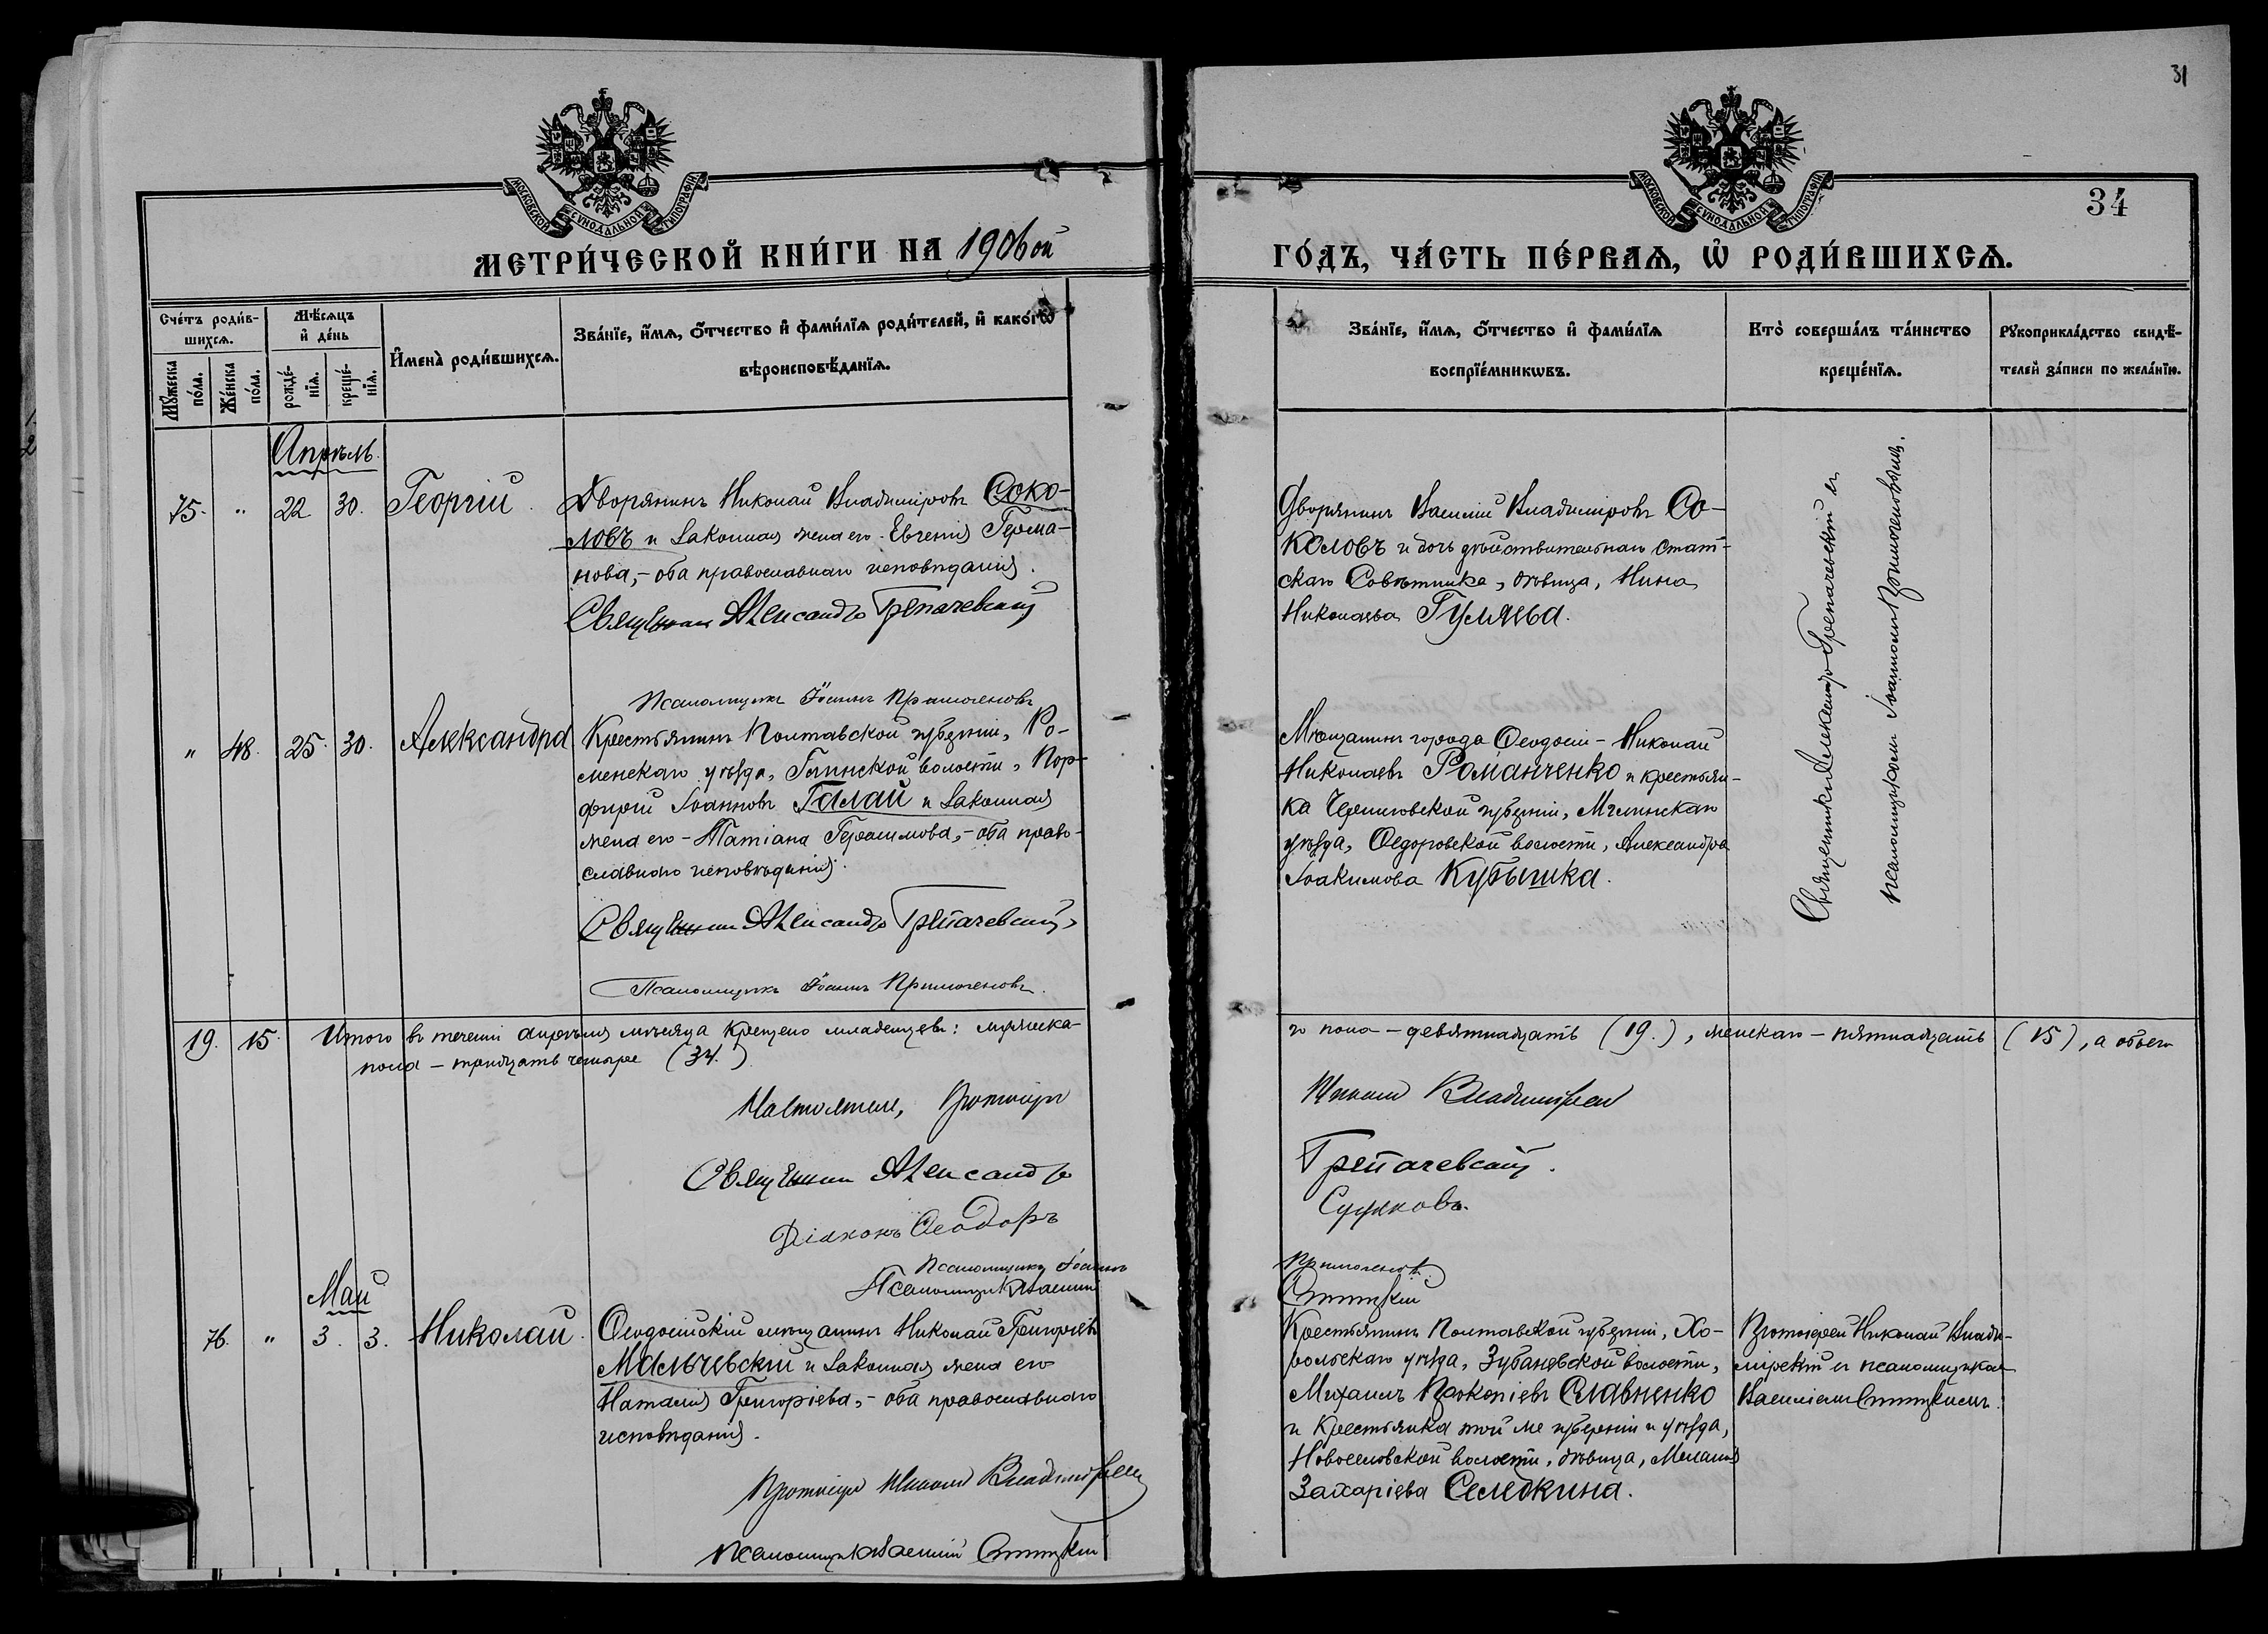 31
34
МОСКОВСКОЙ СѴНОДАЛЬНОЙ ТИПОГРАФІИ
МОСКОВСКОЙ СѴНОДАЛЬНОЙ ТИПОГРАФІИ
МЕТРИ́ЧЕСКОЙ КНИ́ГИ НА 1906 ой
ГО́ДЪ, ЧА́СТЬ ПЕ́РВАѦ, Ѡ҆ РОДИ́ВШИХСѦ.
Сче́тъ роди́в-
шихсѧ.
Мѣ́сѧцъ
и҆ де́нь
Мꙋ́жеска
по́ла.
Же́нска
по́ла.
рожде́-
нїѧ.
креще́-
нїѧ.
И҆мена̀ роди́вшихсѧ.
Зва́нїе, и҆́мѧ, ѻ҆́тчество и҆ фами́лїѧ роди́телей, и҆ како́гѡ
вѣроисповѣ́данїѧ.
Зва́нїе, и҆́мѧ, ѻ҆́тчество и҆ фами́лїѧ
воспрїе́мникѡвъ.
Кто̀ соверша́лъ та́инство
креще́нїѧ.
Рꙋкоприкла́дство свидѣ́-
телей за́писи по жела́нїю.
Апрѣль.
75. " 22 30. Георгій.
Дворянинъ Николай Владиміровъ Соко-
ловъ и законная жена его Евгенія Герма-
нова, – оба православнаго исповѣданія.
Священник Александр Трепачевский
Псаломщикъ Іоаннъ Примоченовъ
Дворянинъ Василій Владиміровъ Со-
коловъ и дочь дѣйствительнаго Стат-
скаго Совѣтника, дѣвица, Нина
Николаева Гуляева.
Священникъ Александръ Трепачевскій съ
псаломщикомъ Іоанномъ Примоченовымъ.
" 48. 25. 30. Александра
Крестьянинъ Полтавской губерніи, Ро-
менскаго уѣзда, Глинской волости, Пор-
фирій Іоанновъ Галай и законная
жена его – Татіана Герасимова, – оба право-
славнаго исповѣданія.
Священник Александр Трепачевский
Псаломщикъ Іоаннъ Примоченовъ.
Мѣщанинъ города Ѳеодосіи – Николай
Николаевъ Романченко и крестьян-
ка Черниговской губерніи, Мглинскаго
уѣзда, Ѳедоровской волости, Александра
Іоакимова Кубышка.
19. 15. Итого въ теченіи апрѣля мѣсяца крещено младенцевъ: мужеска-
го пола – девятнадцать (19.), женскаго – пятнадцать (15), а обоего
пола – тридцать четыре (34.)
Настоятель, Протоіерей Николай Владимірскій
Священник Александр Трепачевский.
Діаконъ Ѳеодоръ
Псаломщикъ Іоаннъ Примоченовъ.
Псаломщикъ Василий
Май
76. " 3. 3. Николай.
Ѳеодосійскій мѣщанинъ Николай Григорьевъ
Мальчевскій и законная жена его
Наталія Григоріева, – оба православнаго
исповѣданія.
Протоіерей Николай Владимірскій
Псаломщикъ Василий
Крестьянинъ Полтавской губерніи, Хо-
рольскаго уѣзда, Зубаневской волости,
Михаилъ Прокопіевъ Славненко
и крестьянка той же губерніи и уѣзда,
Новоселовской волости, дѣвица, Меланія
Захаріева Селедкина.
Протоіерей Николай Влади-
мірскій съ псаломщикомъ
Василіемъ